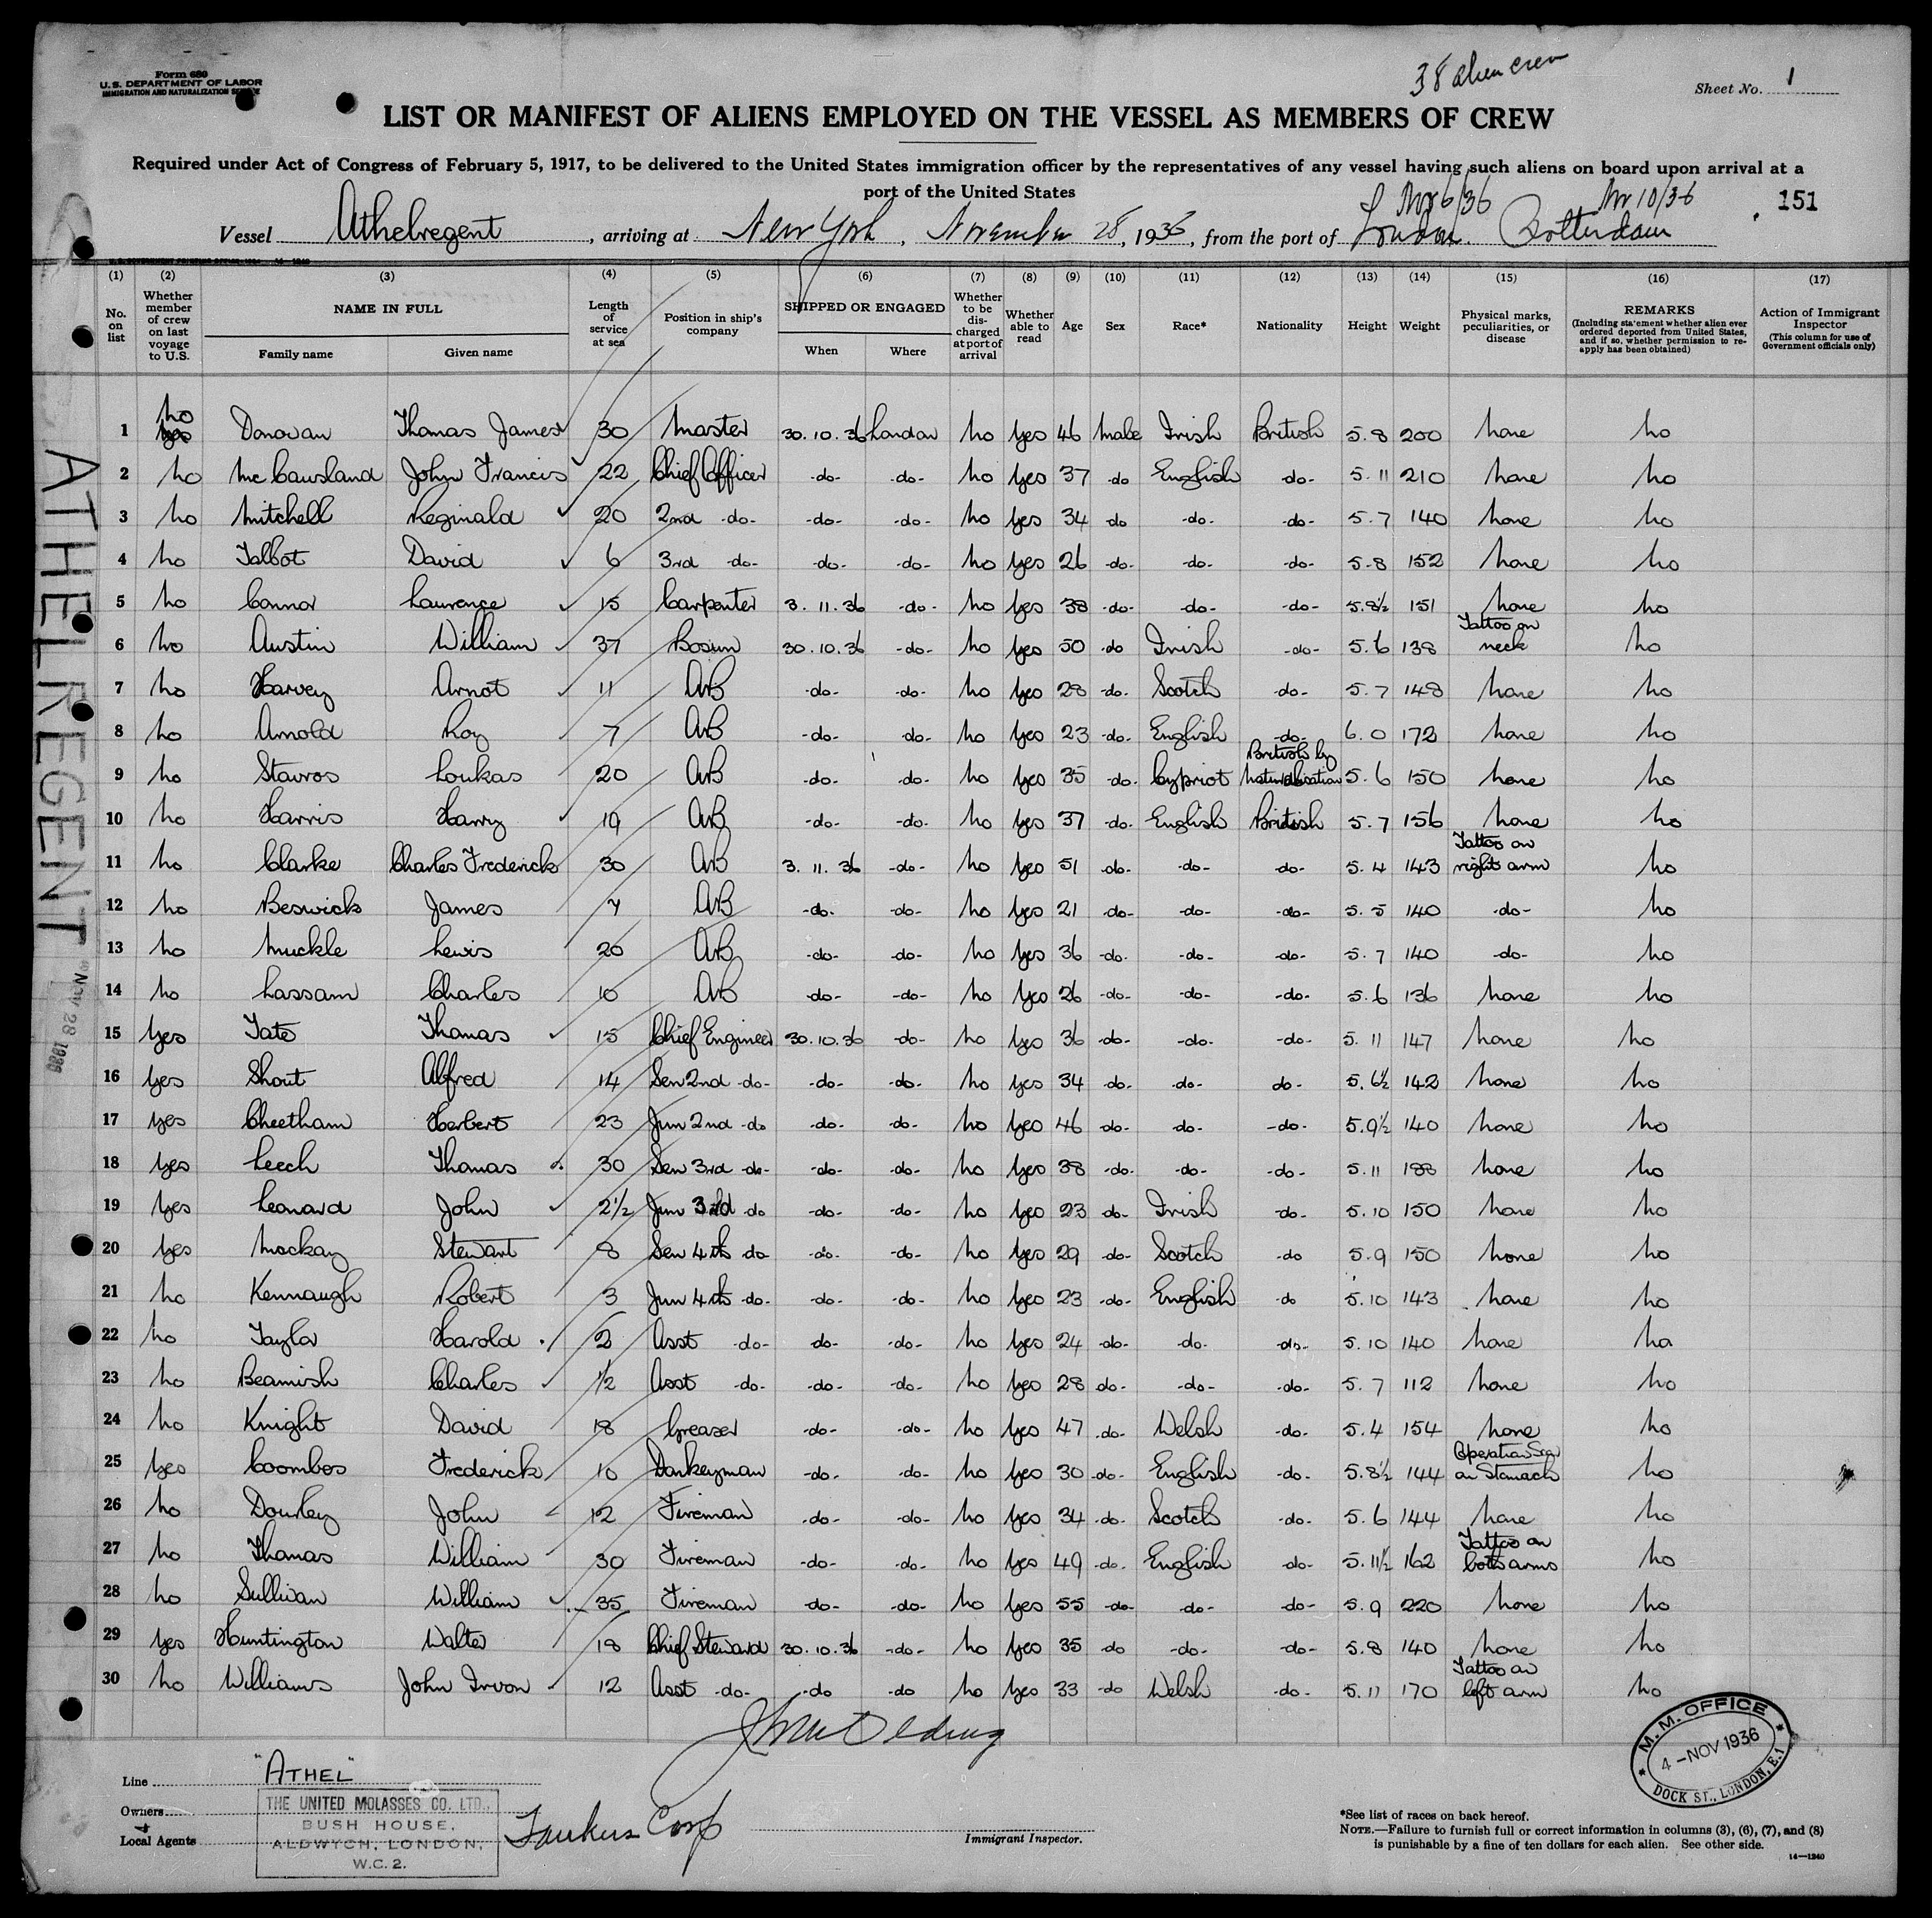 Form 680
U. S. DEPARTMENT OF LABOR
IMMIGRATION AND NATURALIZATION SERVICE
38 alien crew
Sheet No. 1
LIST OR MANIFEST OF ALIENS EMPLOYED ON THE VESSEL AS MEMBERS OF CREW
Required under Act of Congress of February 5, 1917, to be delivered to the United States immigration officer by the representatives of any vessel having such aliens on board upon arrival at a
port of the United States
Nov 6/36 Nov 10/36 151
Vessel Athelregent, arriving at New York, November 28, 1936, from the port of London. Rotterdam
(1) (2) (3) (4) (5) (6) (7) (8) (9) (10) (11) (12) (13) (14) (15) (16) (17)
No. on list Whether member of crew on last voyage to U.S. NAME IN FULL Family name Given name Length of service at sea Position in ship's company SHIPPED OR ENGAGED When Where Whether to be discharged at port of arrival Whether able to read Age Sex Race* Nationality Height Weight Physical marks, peculiarities, or disease REMARKS (Including statement whether alien ever ordered deported from United States, and if so, whether permission to re-apply has been obtained) Action of Immigrant Inspector (This column for use of Government officials only)
1 no yes Donovan Thomas James 30 Master 30.10.36 London no yes 46 Male Irish British 5.8 200 none no
2 no McCausland John Francis 22 Chief Officer -do- -do- no yes 37 -do English -do- 5.11 210 none no
3 no Mitchell Reginald 20 2nd -do- -do- -do- no yes 34 -do -do- -do- 5.7 140 none no
4 no Talbot David 6 3rd -do- -do- -do- no yes 26 -do- -do- -do- 5-8 152 none no
5 no Connor Laurence 15 Carpenter 3.11.36 -do- no yes 38 -do- -do- -do- 5.8½ 151 none no
6 no Austin William 37 Bosun 30.10.36 -do- no yes 50 -do Irish -do- 5.6 138 Tattoo on neck no
7 no Harvey Arnot 11 AB -do- -do- no yes 28 -do- Scotch -do- 5.7 148 none no
8 no Arnold Roy 7 AB -do- -do- no yes 23 -do- English -do- 6.0 172 none no
9 no Stavros Loukas 20 AB -do- -do- no yes 35 -do- Cypriot British by Naturalisation 5.6 150 none no
10 no Harris Harry 19 AB -do- -do- no yes 37 -do- English British 5.7 156 none no
11 no Clarke Charles Frederick 30 AB 3.11.36 -do- no yes 51 -do- -do- -do- 5.4 143 Tattoo on right arm no
12 no Beswick James 4 AB -do- -do- no yes 21 -do- -do- -do- 5.5 140 -do- no
13 no Muckle Lewis 20 AB -do- -do- no yes 36 -do- -do- -do- 5.7 140 -do- no
14 no Lassam Charles 10 AB -do- -do- no yes 26 -do- -do- -do- 5.6 136 none no
15 yes Tate Thomas 15 Chief Engineer 30.10.36 -do- no yes 36 -do- -do- -do- 5.11 147 none no
16 yes Shout Alfred 14 Sen 2nd -do- -do- -do- no yes 34 -do- -do- do- 5.6½ 142 none no
17 yes Cheetham Herbert 23 Jun 2nd -do -do- -do- no yes 46 -do- -do- -do- 5.9½ 140 none no
18 yes Leech Thomas 30 Sen 3rd -do- -do- -do- no yes 38 -do- -do- -do- 5.11 188 none no
19 yes Leonard John 2½ Jun 3rd -do -do- -do- no yes 23 -do- Irish -do- 5.10 150 none no
20 yes Mackay Stewart 8 Sen 4th do -do- -do- no yes 29 -do- Scotch -do 5.9 150 none no
21 no Kennaugh Robert 3 Jun 4th -do- -do- -do- no yes 23 -do- English -do 5.10 143 none no
22 no Taylor Harold 2 Asst -do- -do- -do- no yes 24 -do- -do- -do- 5.10 140 none no
23 no Beamish Charles ½ Asst -do- -do- -do- no yes 28 do- -do- -do- 5.7 112 none no
24 no Knight David 18 Greaser -do- -do- no yes 47 -do- Welsh -do- 5.4 154 none no
25 yes Coombes Frederick 10 Donkeyman -do- -do- no yes 30 -do- English -do- 5.8½ 144 Operation Scar on Stomach no
26 no Dourley John 12 Fireman -do- -do- no yes 34 -do- Scotch -do- 5.6 144 none no
27 no Thomas William 30 Fireman -do- -do- no yes 49 -do- English -do- 5.11½ 162 Tattoo on both arms no
28 no Sullivan William 35 Fireman -do- -do- no yes 55 -do- -do- -do- 5.9 220 none no
29 yes Huntington Walter 18 Chief Steward 30.10.36 -do- no yes 35 -do -do- -do- 5.8 140 none no
30 no Williams John Ivon 12 Asst -do- -do -do no yes 33 -do Welsh -do- 5.11 170 Tattoo on left arm no
ATHELREGENT
NOV 28 1936
Line "ATHEL"
Owners
Local Agents
THE UNITED MOLASSES CO. LTD.,
BUSH HOUSE,
ALDWYCH, LONDON,
W.C. 2.
Tankers Corp
Immigrant Inspector.
M. M. OFFICE
4 - NOV 1936
DOCK ST., LONDON, E.1
*See list of races on back hereof.
NOTE.—Failure to furnish full or correct information in columns (3), (6), (7), and (8)
is punishable by a fine of ten dollars for each alien. See other side.
14—1240